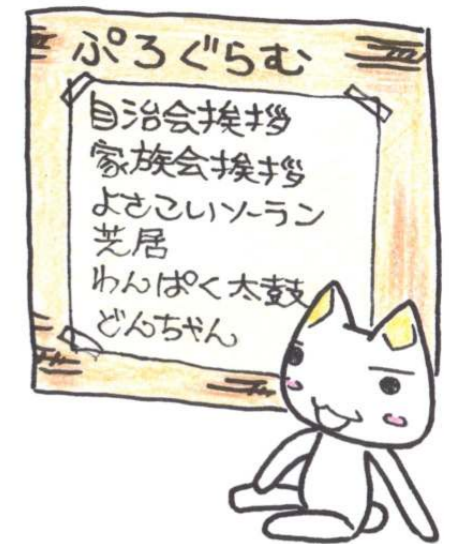 ぷろぐらむ
自治会挨拶
家族会挨拶
よさこいソーラン
芝居
わんぱく太鼓
どんちゃん